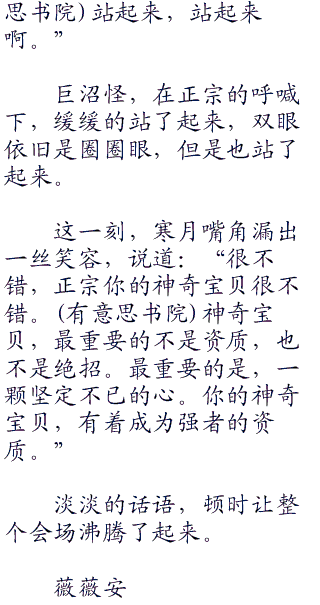 思书院)站起来，站起来
啊。”
巨沼怪，在正宗的呼喊
下，缓缓的站了起来，双眼
依旧是圈圈眼，但是也站了
起来。
这一刻，寒月嘴角漏出
一丝笑容，说道：“很不
错，正宗你的神奇宝贝很不
错。(有意思书院)神奇宝
贝，最重要的不是资质，也
不是绝招。最重要的是，一
颗坚定不已的心。你的神奇
宝贝，有着成为强者的资
质。”
淡淡的话语，顿时让整
个会场沸腾了起来。
薇薇安